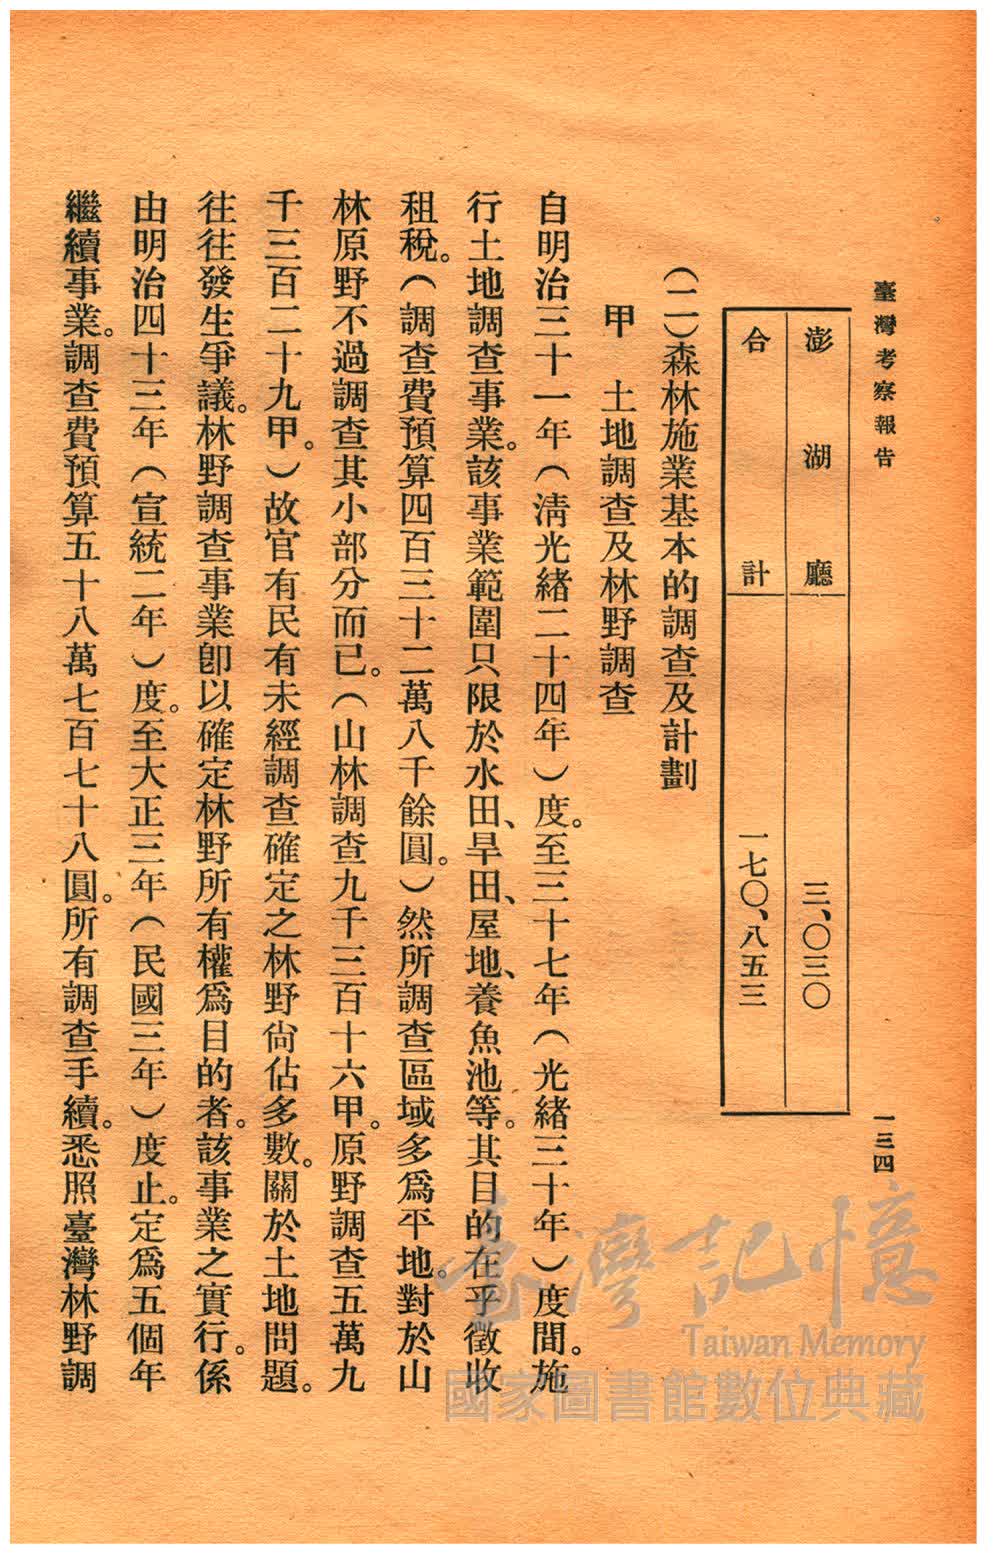 臺灣考察報告
一三四
澎湖廳 三、〇三〇
合計 一七〇、八五三
(二)森林施業基本的調查及計劃
甲 土地調查及林野調查
自明治三十一年(淸光緒二十四年)度。至三十七年(光緒三十年)度間。施
行土地調查事業。該事業範圍只限於水田、旱田、屋地、養魚池等。其目的在乎徵收
租稅。(調查費預算四百三十二萬八千餘圓。)然所調查區域多爲平地。對於山
林原野不過調查其小部分而已。(山林調查九千三百十六甲。原野調查五萬九
千三百二十九甲。)故官有民有未經調查確定之林野尙佔多數。關於土地問題。
往往發生爭議。林野調查事業卽以確定林野所有權爲目的者。該事業之實行。係
由明治四十三年(宣統二年)度。至大正三年(民國三年)度止。定爲五個年
繼續事業。調查費預算五十八萬七百七十八圓。所有調查手續。悉照臺灣林野調
臺灣記憶
Taiwan Memory
國家圖書館數位典藏